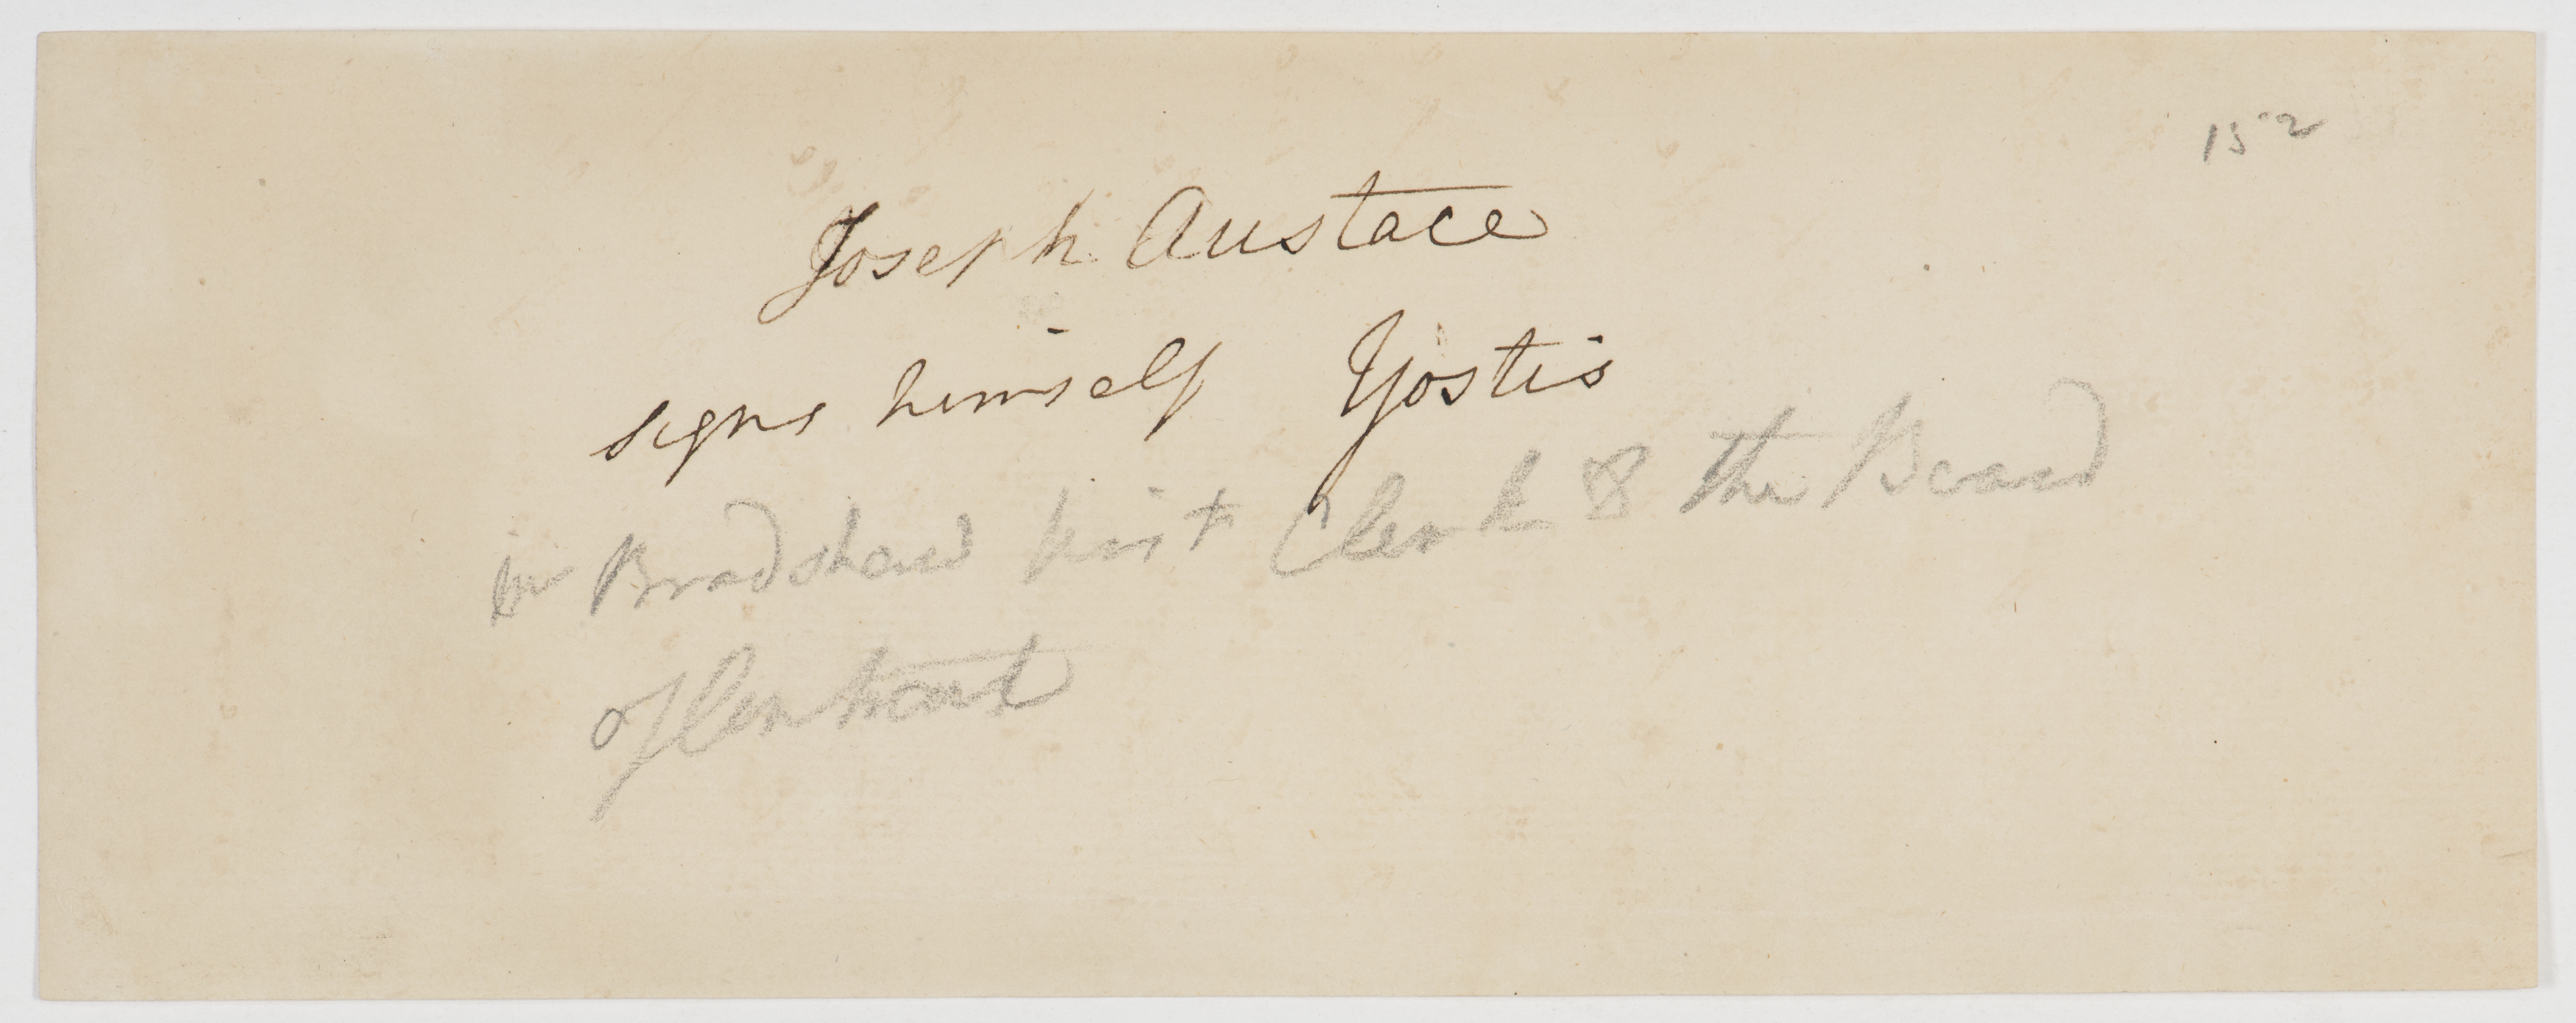 152
Joseph Austace
signs himself Yostis
Mr Bradshaw first Clerk & the Board
of Control